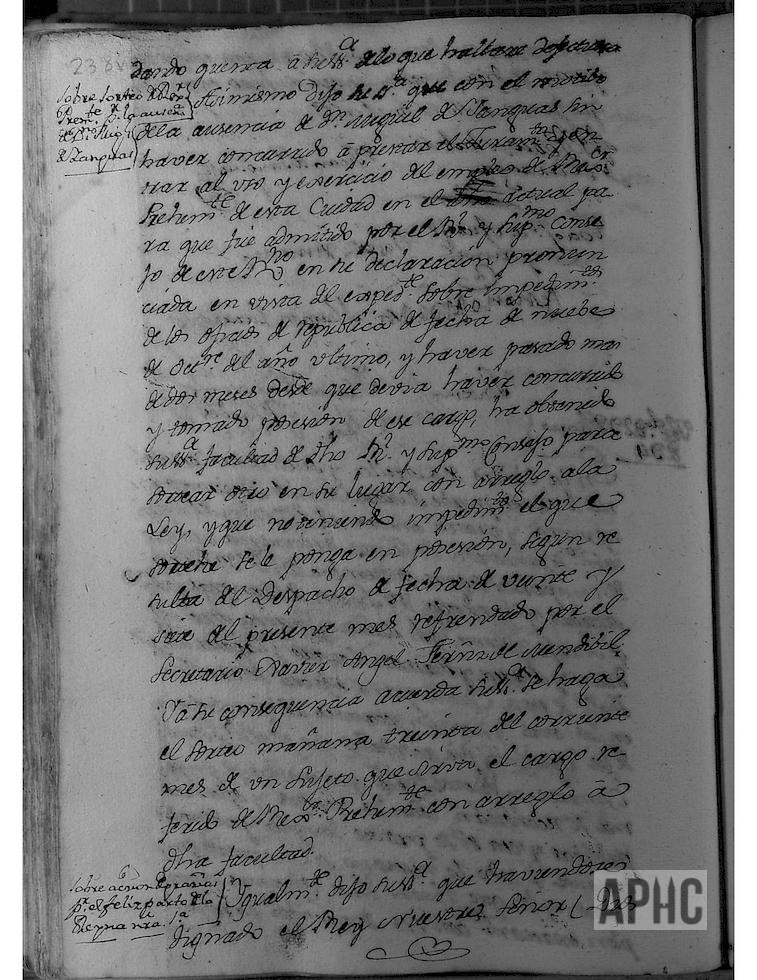 238v
dando quenta á su Sª de lo que hallare defectuoso
sobre sorteo de Dor
Presmte pr la ausencia
de Dn Migl
de Zanguas
Asimismo dijo su Sª que con el motibo
de la ausencia de Dn Miguel de Zanguas sin
haver concurrido á prestar el Juramto y en
trar al uso y exercicio del empleo de
Prehemte de esta Ciudad en el actual pa
ra que fue admitido por el Rl y Supmo Conse
jo de este Rno en su declaracion pronun
ciada en vista del expedte sobre impedimtos
de los oficios de republica de fecha de nuebe
de Octre del año ultimo, y haver pasado mas
de dos meses desde que devia haver concurrido
y tomado posesión de ese cargo, ha obtenido
su Sª facultad de dho Rl y Supmo Consejo para
sortear otro en su lugar con arreglo a la
Ley, y que no teniendo impedimto el que
sorteche se le ponga en posesión, segun re
sulta del Despacho de fecha de veinte y
seis del presente mes refrendado por el
Secretario Xavier Angel Fernz de Mendibil,
Y á su consequencia acuerda su Sª se haga
el sorteo mañana treinta del corriente
mes de un sujeto que sirva el cargo re
ferido de Prehemte con arreglo á
dha facultad.
sobre accion de gracias
pr el feliz parto de la
Reyna nrª Sª
Ygualmte dijo su Sª que haviendose
dignado el Rey Nuestro Señor (Dios
APHC